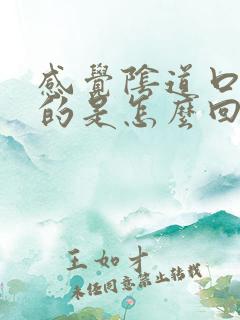 感覺陰道口
的是怎麼回
王如才
未經同意禁止轉載